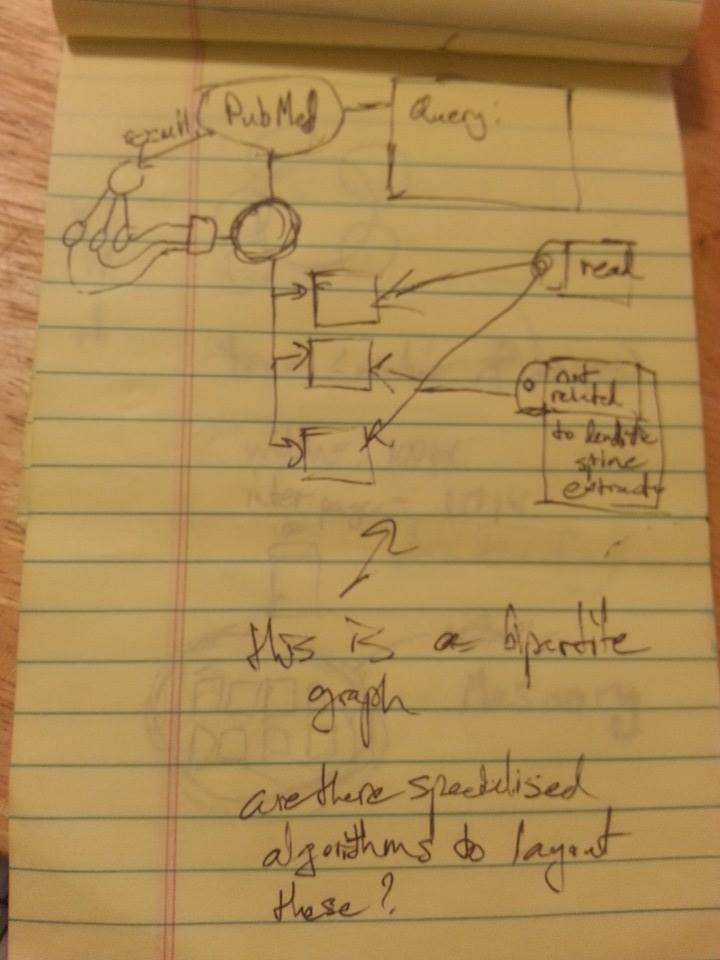 PubMed
Query:
read
not
related
to dendrite
spine
this is a bipartite
graph
are there specialised
algorithms to layout
these?